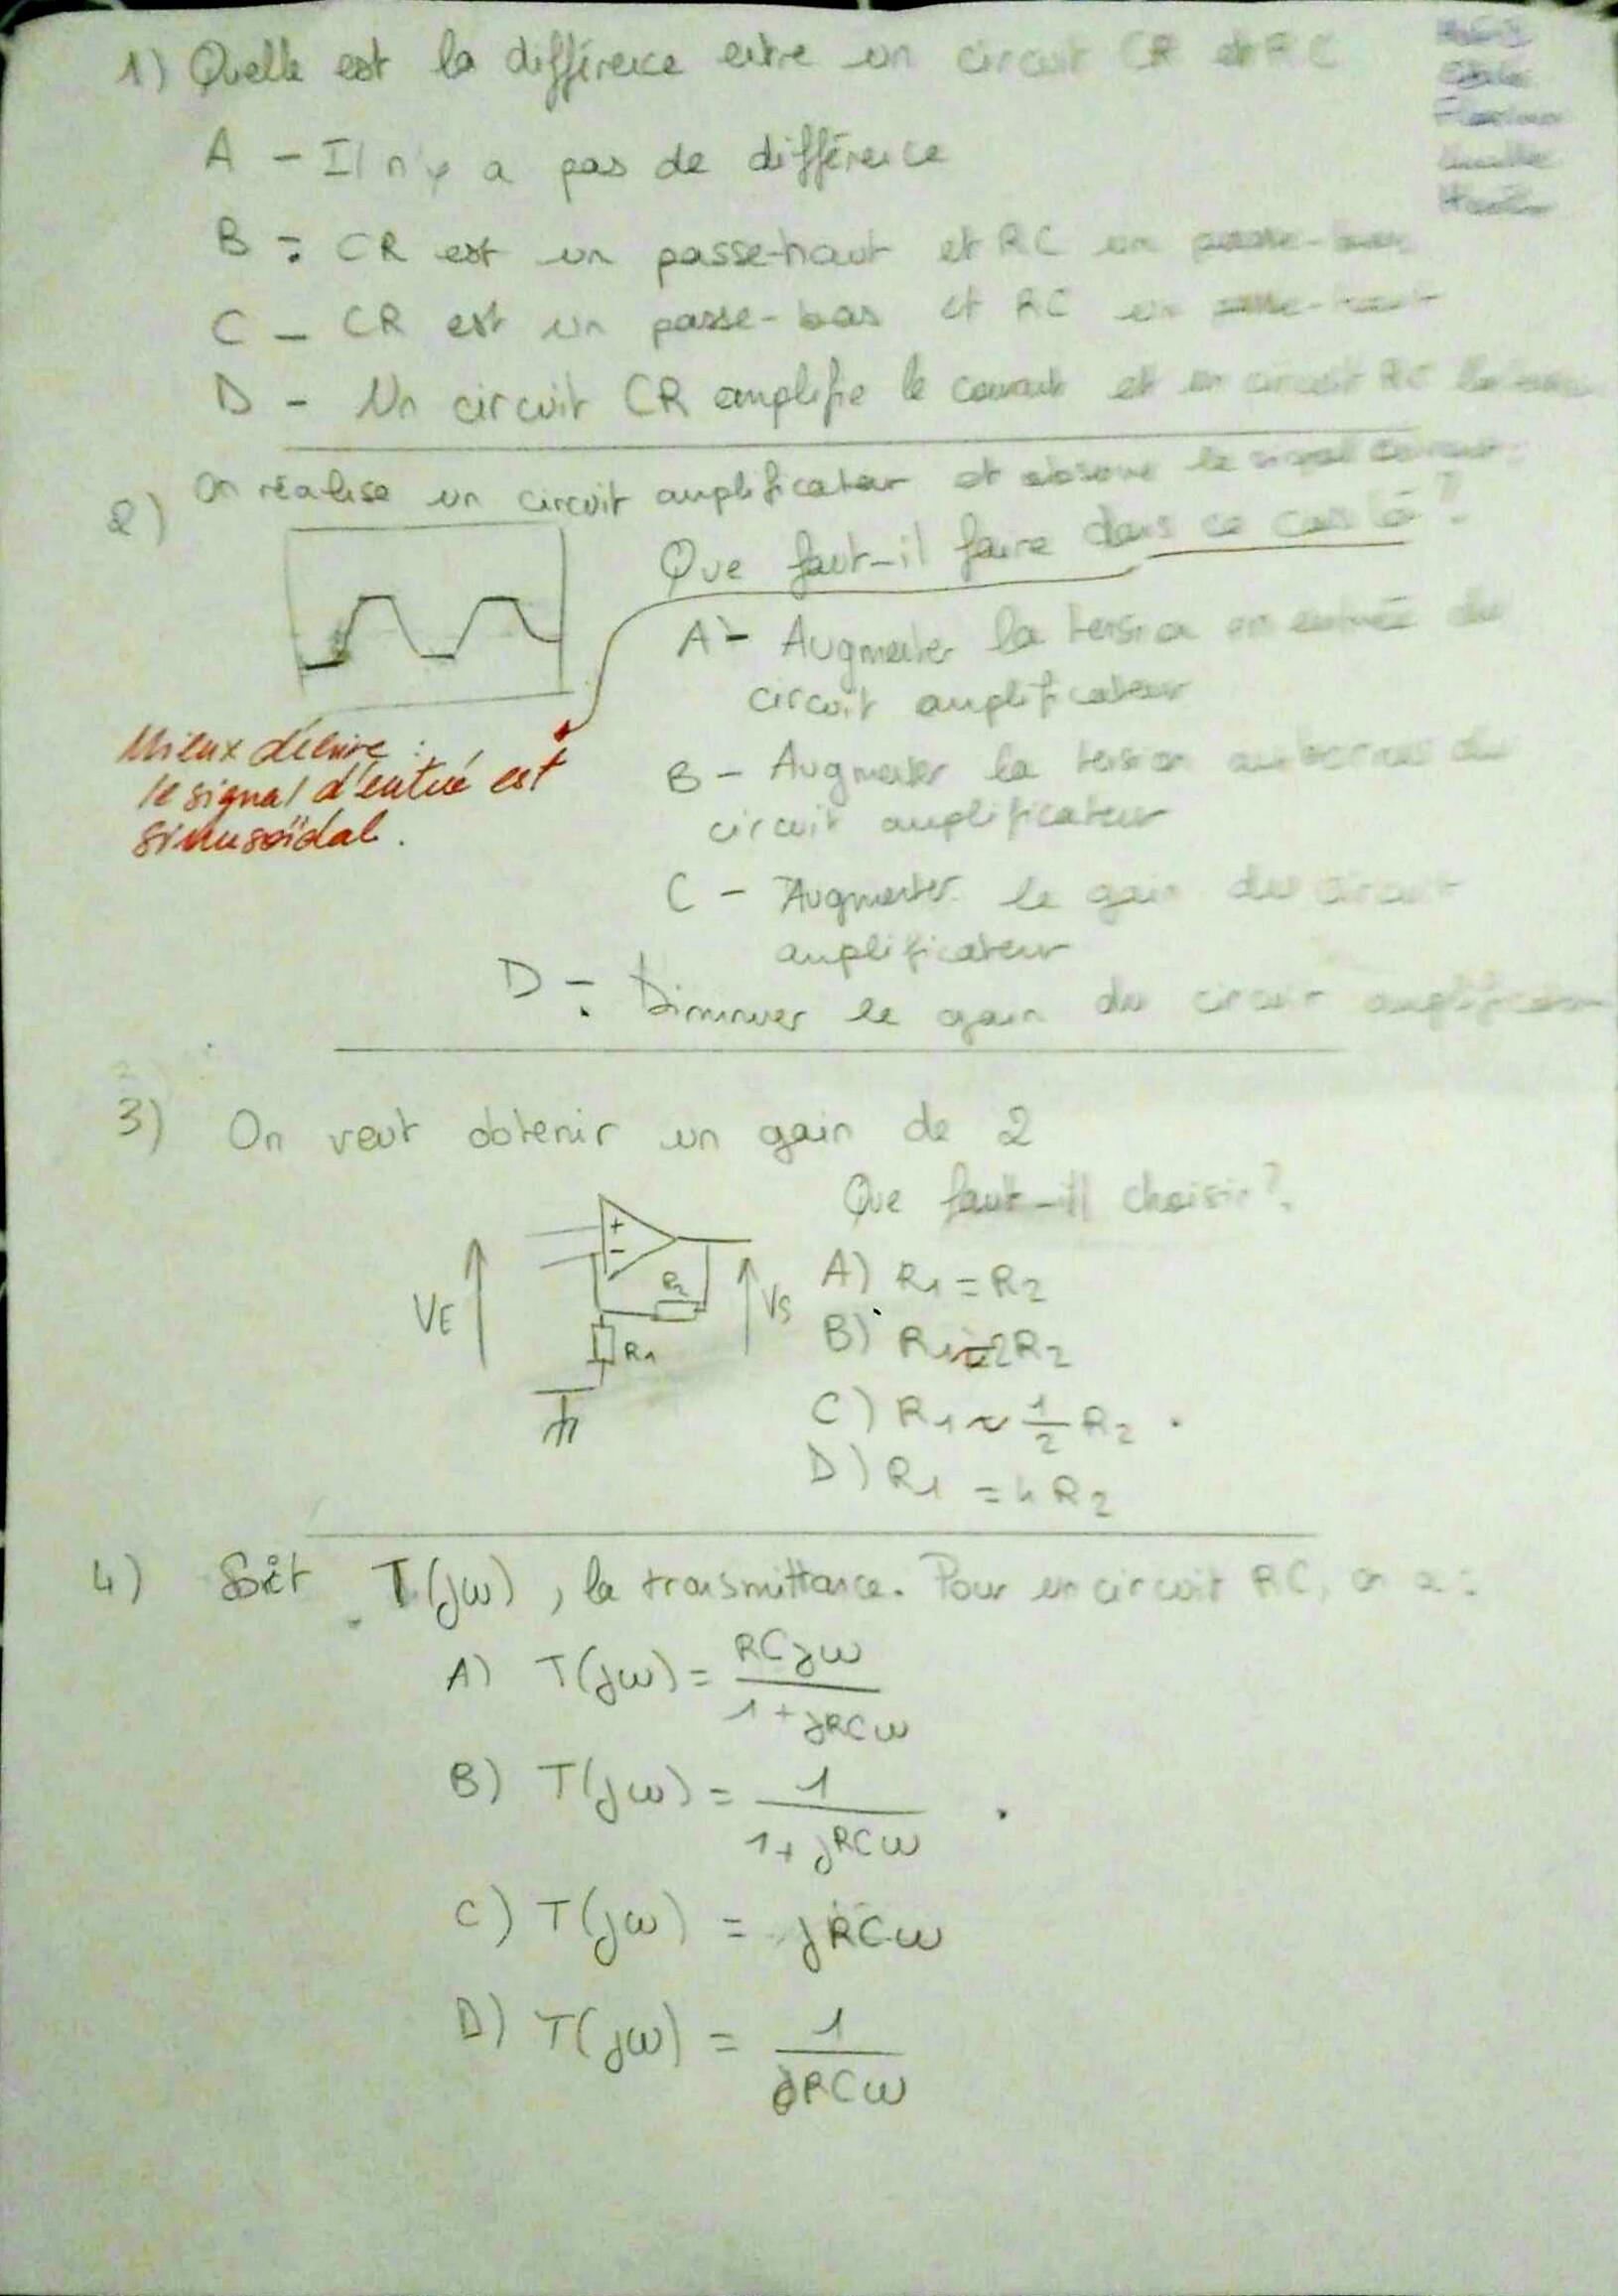 1) Quelle est la différence entre un circuit CR et RC
A - Il n'y a pas de différence
B - CR est un passe-haut et RC un passe-bas
C - CR est un passe-bas et RC un passe-haut
D - Un circuit CR amplifie le courant et un circuit RC
2) On réalise un circuit amplificateur et observe le signal
Que faut-il faire dans ce cas là ?
A - Augmenter la tension en entrée du
circuit amplificateur
Mieux décrire :
le signal d'entrée est
sinusoïdal.
B - Augmenter la tension aux bornes du
circuit amplificateur
C - Augmenter le gain du circuit
amplificateur
D - Diminuer le gain du circuit amplificateur
3) On veut obtenir un gain de 2
Que faut-il choisir ?
VE
+
-
R2
R1
VS
A) R1 = R2
B) R1 = 2R2
C) R1 ≈ 1/2 R2
D) R1 = 4R2
4) Soit T(jω), la transmittance. Pour un circuit RC, on a :
A) T(jω) = RCjω / 1 + jRCω
B) T(jω) = 1 / 1 + jRCω
C) T(jω) = jRCω
D) T(jω) = 1 / jRCω